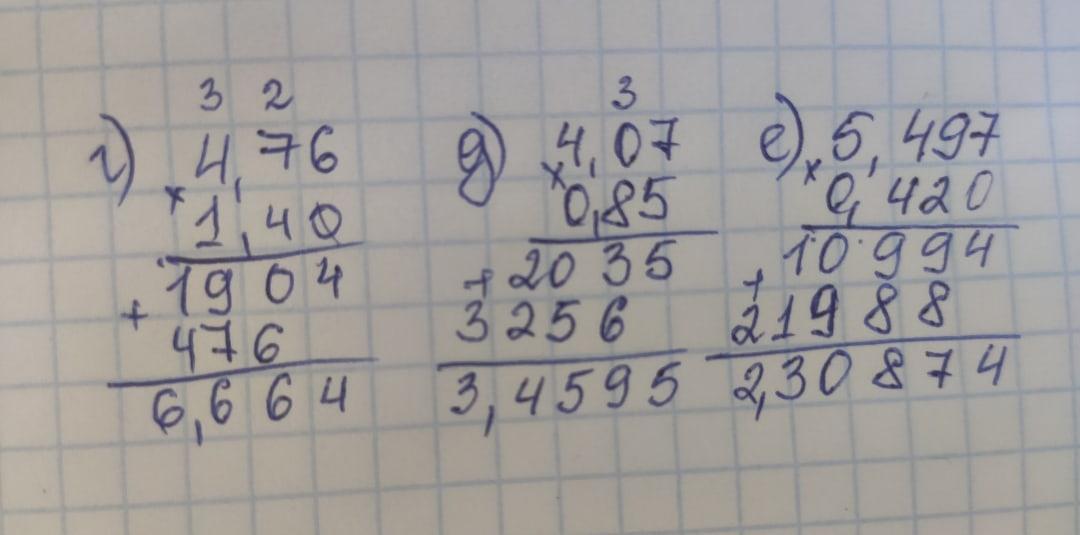 3 2
г) 4,76
× 1,40
1904
+ 476
6,664
3
д) 4,07
× 0,85
+ 2035
3256
3,4595
е) 5,497
× 0,420
+ 10994
21988
2,30874